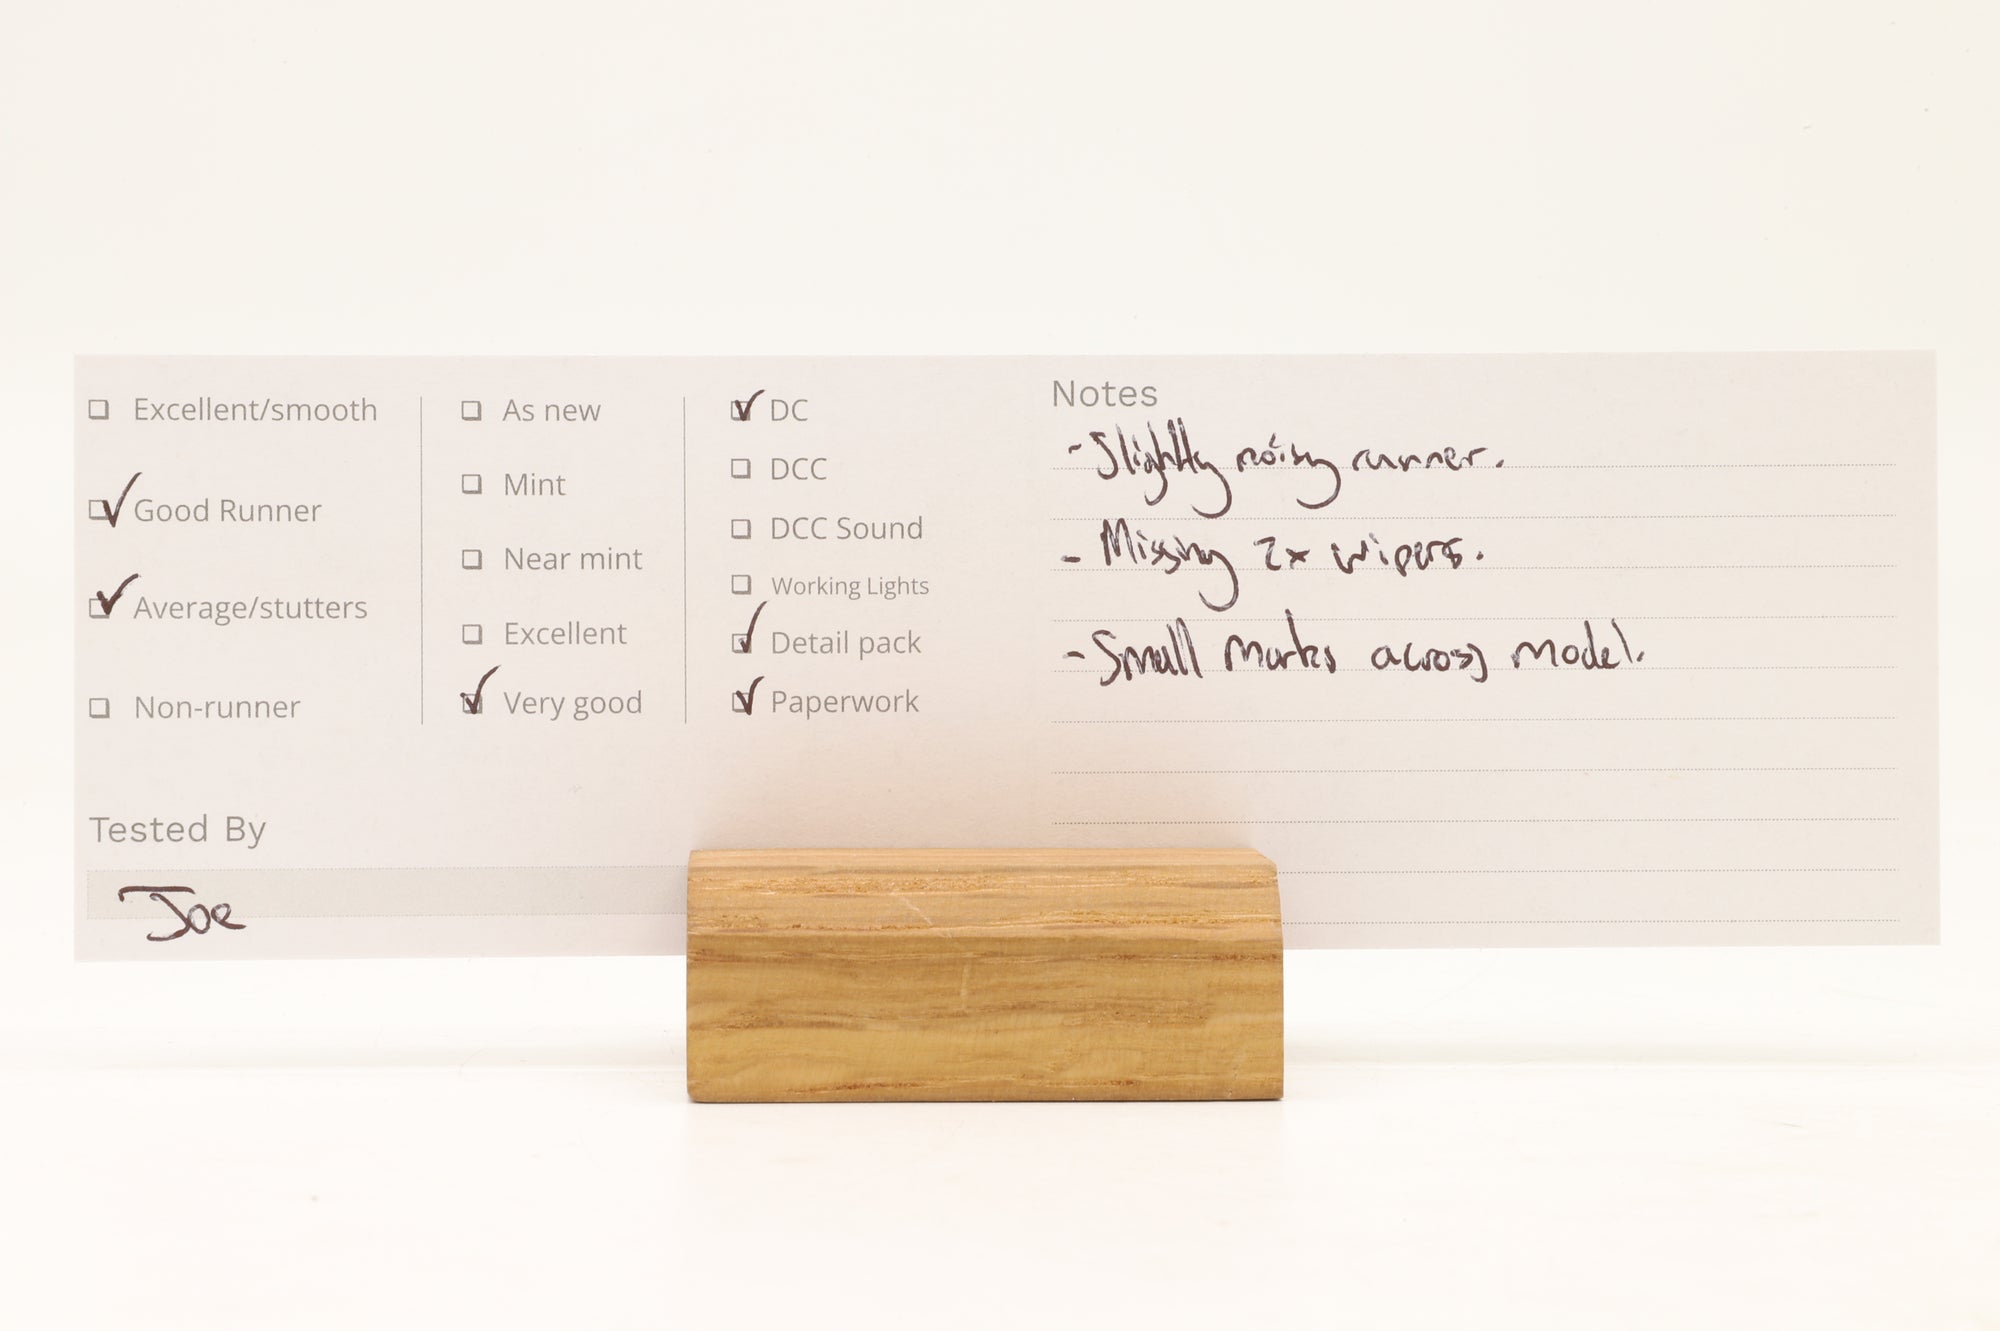 Excellent/smooth
Good Runner
Average/stutters
Non-runner
As new
Mint
Near mint
Excellent
Very good
DC
DCC
DCC Sound
Working Lights
Detail pack
Paperwork
Notes
- Slightly noisy runner.
- Missing 2x wipers.
- Small marks across model.
Tested By
Joe